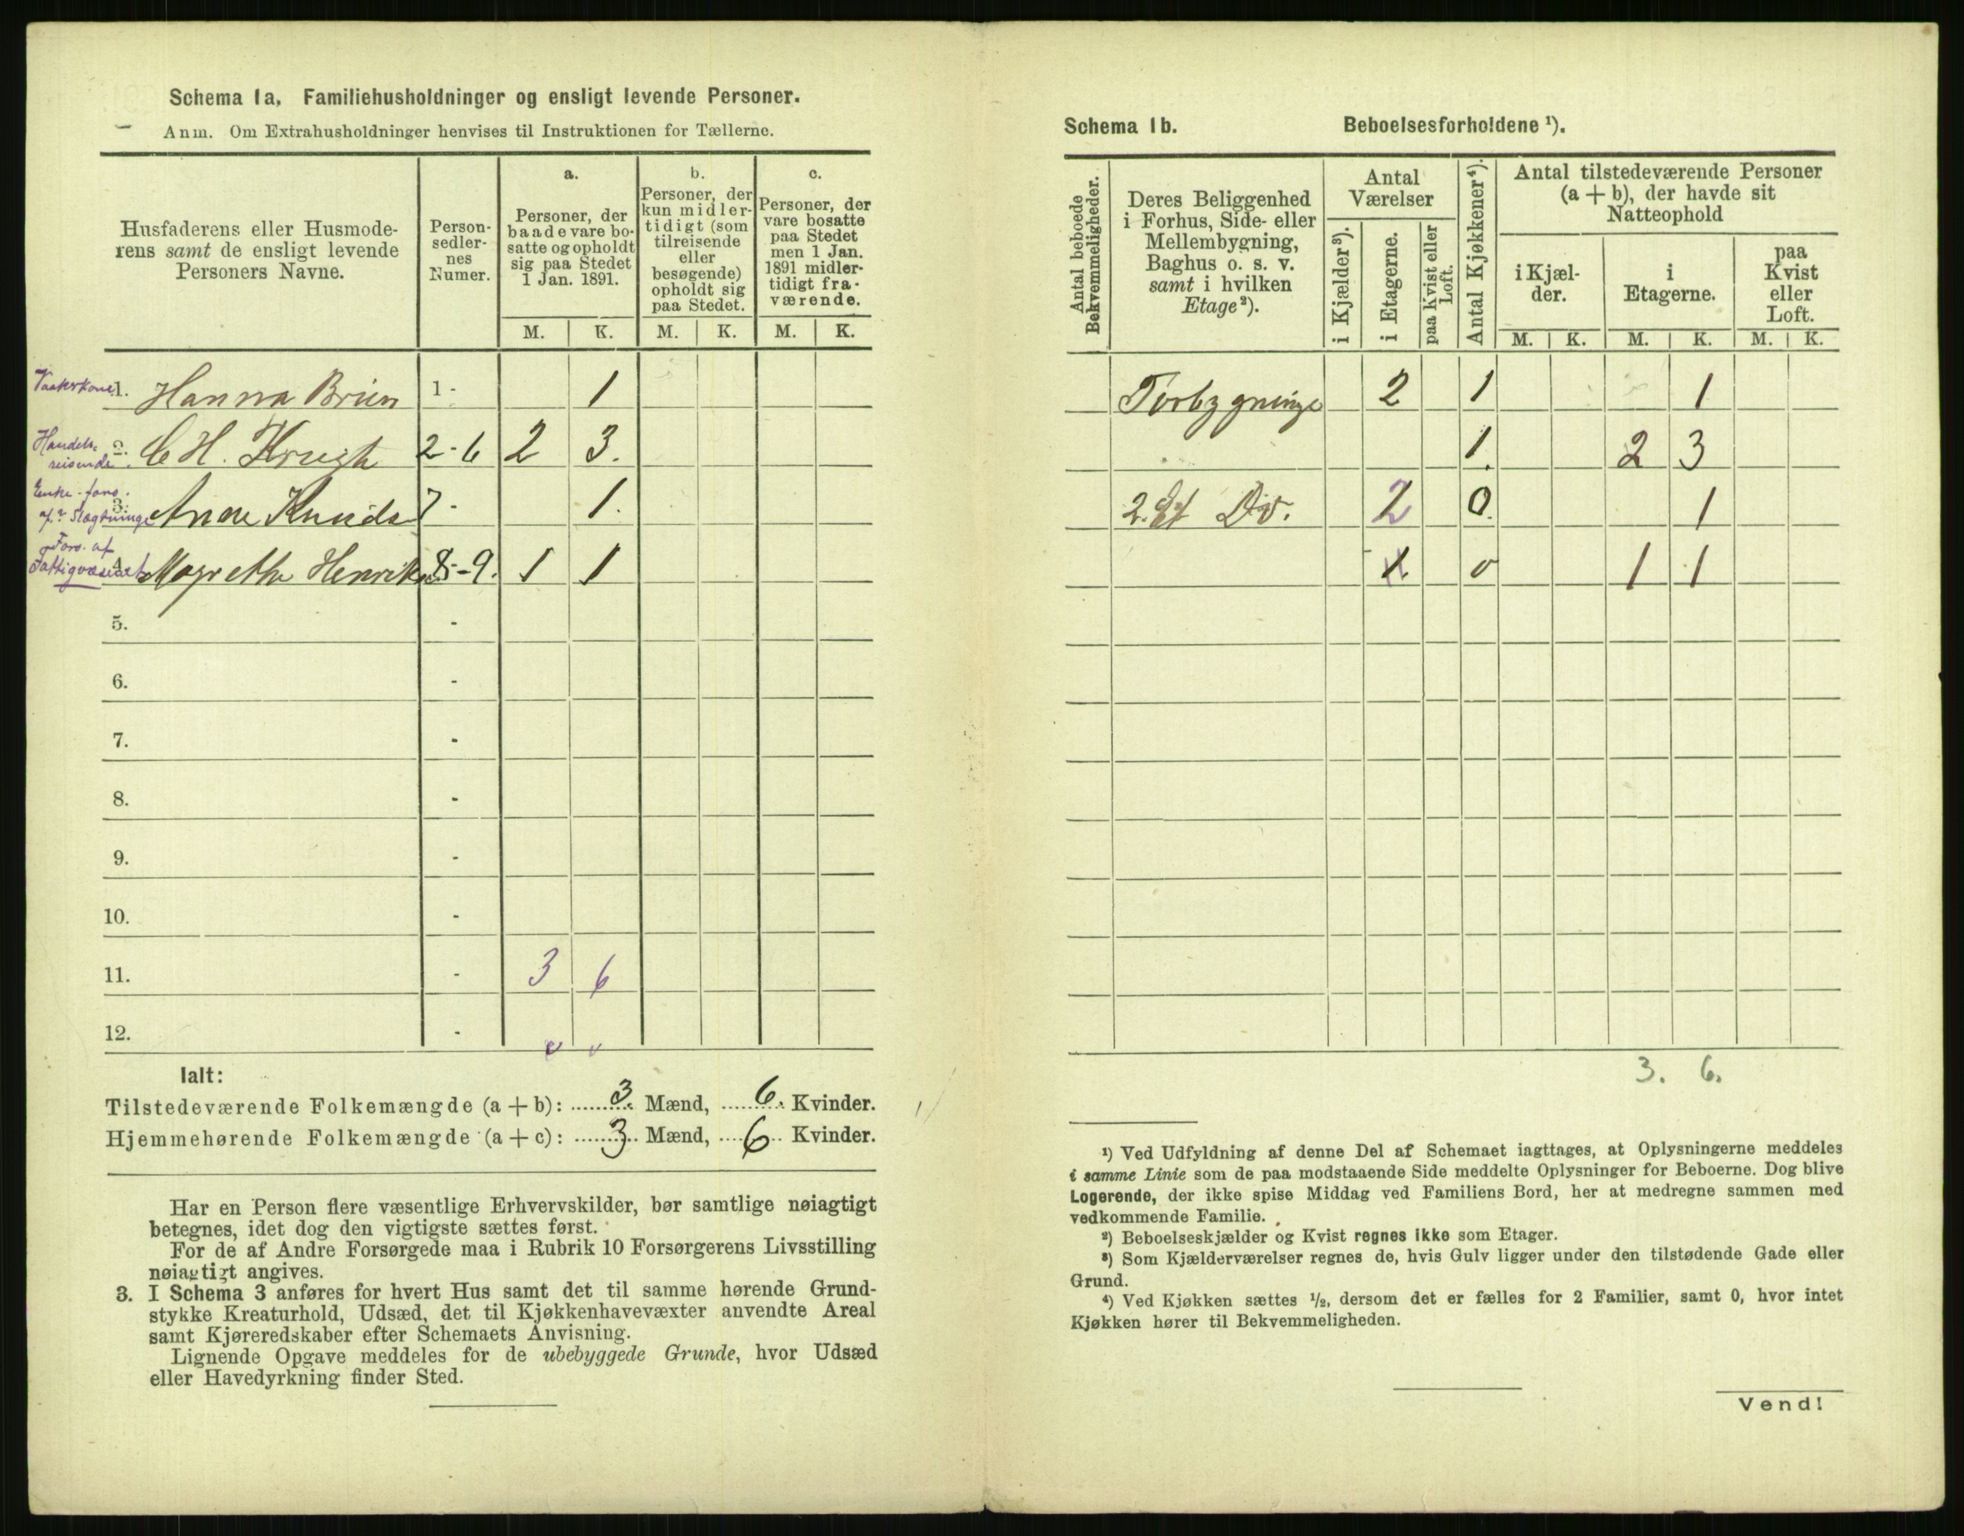 Schema 1a. Familiehusholdninger og ensligt levende Personer.
Anm. Om Extrahusholdninger henvises til Instruktionen for Tællerne.
Husfaderens eller Husmoderens samt de ensligt levende Personers Navne.
Person-
sedler-
nes
Numer.
a.
Personer, der
baade vare bo-
satte og opholdt
sig paa Stedet
1 Jan. 1891.
b.
Personer, der
kun midler-
tidigt (som
tilreisende
eller
besøgende)
opholdt sig
paa Stedet.
c.
Personer, der
vare bosatte
paa Stedet
men 1 Jan.
1891 midler-
tidigt fra-
værende.
M. K. M. K. M. K.
1. Hanna Brien 1 - 1
Handels-
reisende 2. C H. Krugh 2 - 6 2 3.
Enke. fors.
af Slægtninge 3. Anne Knuds 7 - 1.
Fors. af
Fattigvæsenet 4. Magrethe Henriks 8 - 9. 1 1
5. -
6. -
7. -
8. -
9. -
10. -
11. - 3 6
12. -
Ialt:
Tilstedeværende Folkemængde (a + b): 3. Mænd, 6. Kvinder.
Hjemmehørende Folkemængde (a + c): 3 Mænd, 6 Kvinder.
Har en Person flere væsentlige Erhvervskilder, bør samtlige nøiagtigt
betegnes, idet dog den vigtigste sættes først.
For de af Andre Forsørgede maa i Rubrik 10 Forsørgerens Livsstilling
nøiagtigt angives.
3. I Schema 3 anføres for hvert Hus samt det til samme hørende Grund-
stykke Kreaturhold, Udsæd, det til Kjøkkenhavevæxter anvendte Areal
samt Kjøreredskaber efter Schemaets Anvisning.
Lignende Opgave meddeles for de ubebyggede Grunde, hvor Udsæd
eller Havedyrkning finder Sted.
Schema 1b. Beboelsesforholdene ¹).
Antal beboede
Bekvemmeligheder.
Deres Beliggenhed
i Forhus, Side- eller
Mellembygning,
Baghus o. s. v.
samt i hvilken
Etage²).
Antal
Værelser
i Kjælder³).
i Etagerne.
paa Kvist eller
Loft.
Antal Kjøkkener⁴).
Antal tilstedeværende Personer
(a + b), der havde sit
Natteophold
i Kjæl-
der.
i
Etagerne.
paa
Kvist
eller
Loft.
M. K. M. K. M. K.
2 1 1
1. 2 3
2. Et Do. 2 0. 1
0 1 1
3. 6.
¹) Ved Udfyldning af denne Del af Schemaet iagttages, at Oplysningerne meddeles
i samme Linie som de paa modstaaende Side meddelte Oplysninger for Beboerne. Dog blive
Logerende, der ikke spise Middag ved Familiens Bord, her at medregne sammen med
vedkommende Familie.
²) Beboelseskjælder og Kvist regnes ikke som Etager.
³) Som Kjælderværelser regnes de, hvis Gulv ligger under den tilstødende Gade eller
Grund.
⁴) Ved Kjøkken sættes ½, dersom det er fælles for 2 Familier, samt 0, hvor intet
Kjøkken hører til Bekvemmeligheden.
Vend!